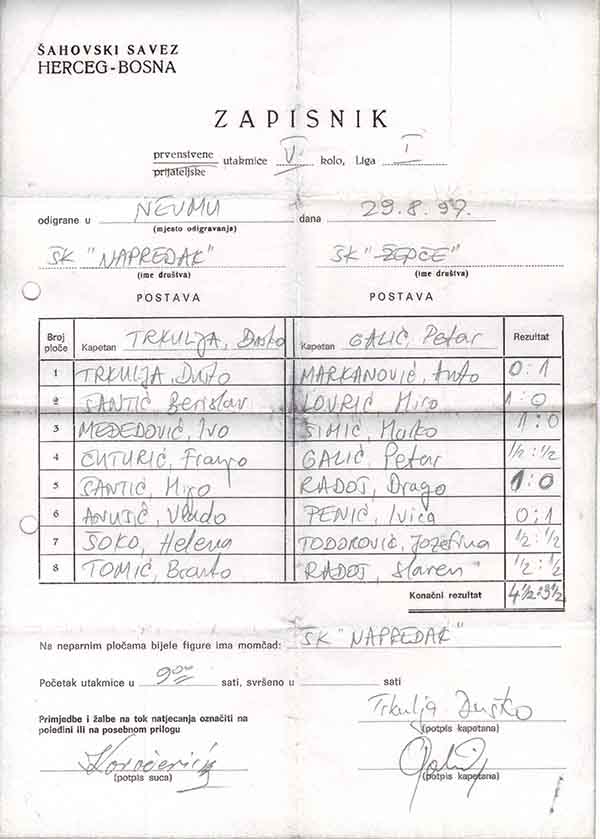 ŠAHOVSKI SAVEZ
HERCEG-BOSNA
ZAPISNIK
prvenstvene
prijateljske
utakmice V. kolo, Liga I
odigrane u NEUMU dana 29.8.97.
(mjesto odigravanja)
ŠK "NAPREDAK" ŠK "ŽEPČE"
(ime društva) (ime društva)
POSTAVA POSTAVA
Broj ploče Kapetan TRKULJA, Duško Kapetan GALIĆ, Petar Rezultat
1 TRKULJA, Duško MARKANOVIĆ, Anto 0:1
2 SANTIĆ Berislav LOVRIĆ, Miro 1:0
3 MEĐEDOVIĆ, Ivo ŠIMIĆ, Marko 1:0
4 ČUTURIĆ, Franjo GALIĆ, Petar 1/2:1/2
5 SANTIĆ, Miro RADOŠ, Drago 1:0
6 ANUŠIĆ, Vlado PENIĆ, Ivica 0:1
7 ŠOKO, Helena TODOROVIĆ, Jozefina 1/2:1/2
8 TOMIĆ, Branko "RADOŠ, Slaven" 1/2:1/2
Konačni rezultat 4 1/2:3 1/2
Na neparnim pločama bijele figure ima momčad: ŠK "NAPREDAK"
Početak utakmice u 9.00 sati, svršeno u sati
Trkulja Duško
(potpis kapetana)
Primjedbe i žalbe na tok natjecanja označiti na
poleđini ili na posebnom prilogu
(potpis suca) (potpis kapetana)